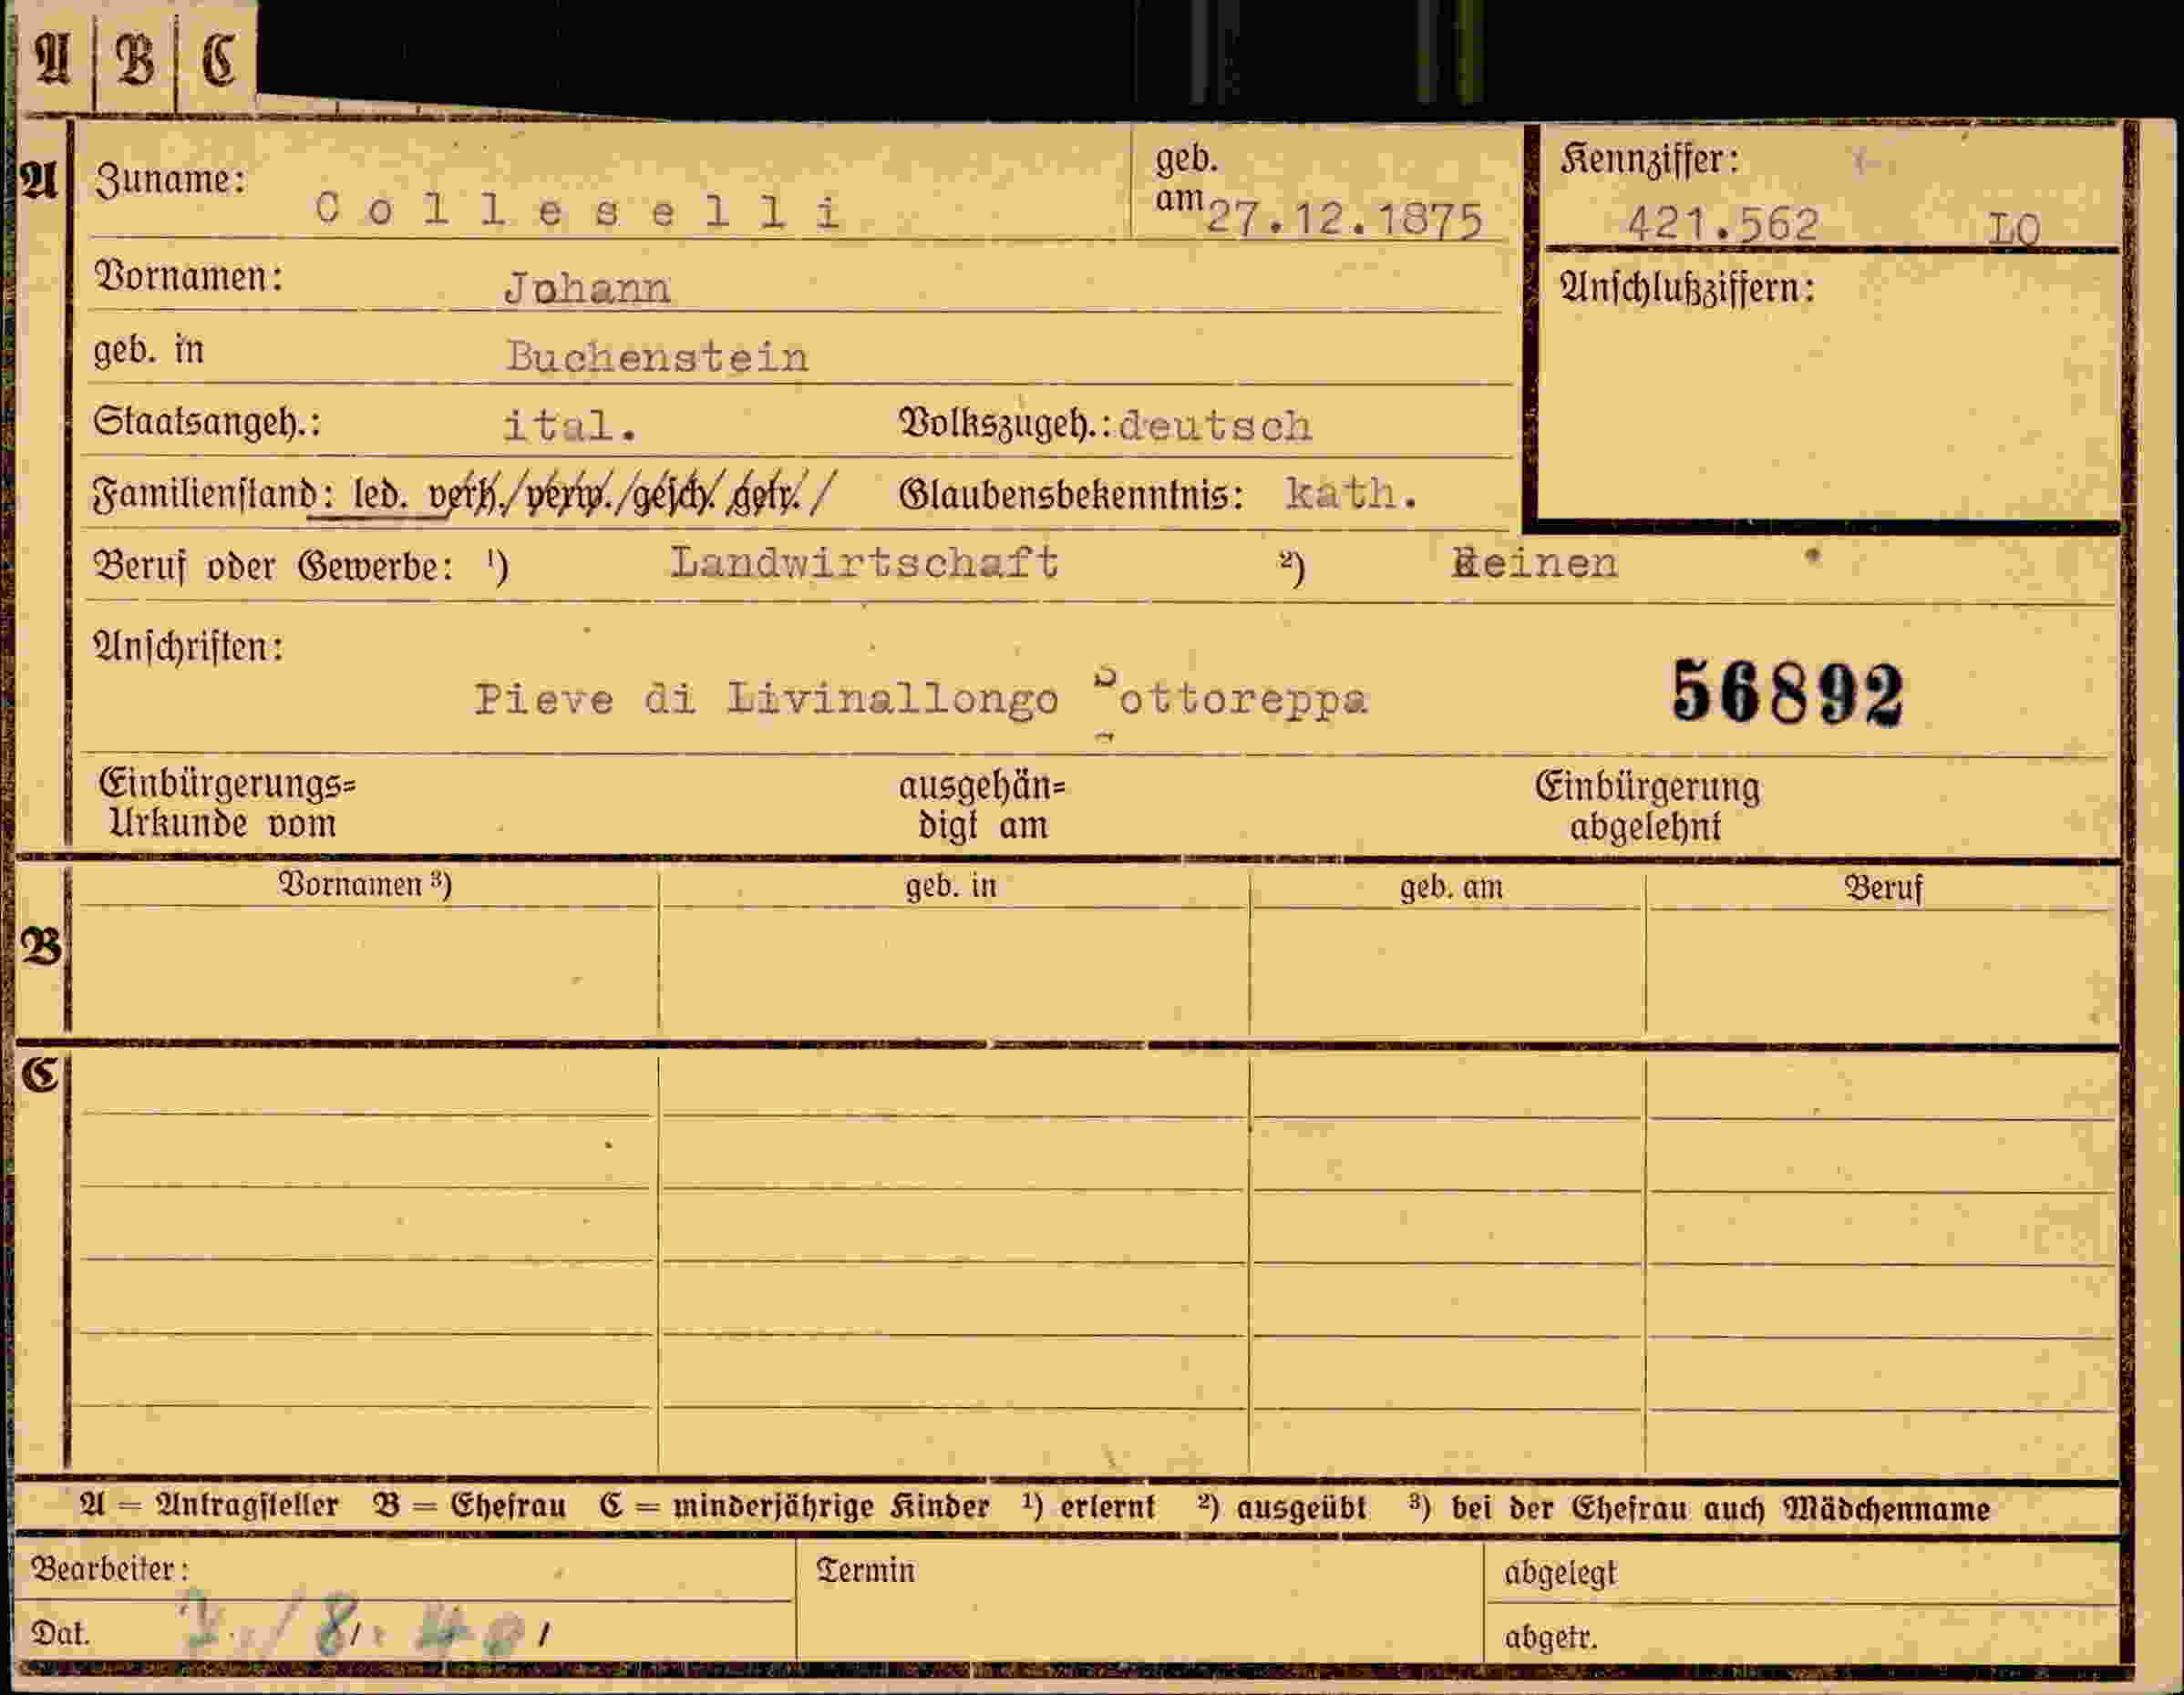 A B C
A Zuname: Colleselli geb. am 27.12.1875 Kennziffer: 421.562 LO
Vornamen: Johann Anschlußziffern:
geb. in Buchenstein
Staatsangeh.: ital. Volkszugeh.: deutsch
Familienstand: led. verh./verw./gesch./getr./ Glaubensbekenntnis: kath.
Beruf oder Gewerbe: ¹) Landwirtschaft ²) Keinen
Anschriften:
Pieve di Livinallongo Sottoreppa 56892
Einbürgerungs= ausgehän= Einbürgerung
Urkunde vom digt am abgelehnt
Vornamen ³) geb. in geb. am Beruf
B
C
A = Antragsteller B = Ehefrau C = minderjährige Kinder ¹) erlernt ²) ausgeübt ³) bei der Ehefrau auch Mädchenname
Bearbeiter: Termin abgelegt
Dat. 7./8. 40 abgetr.